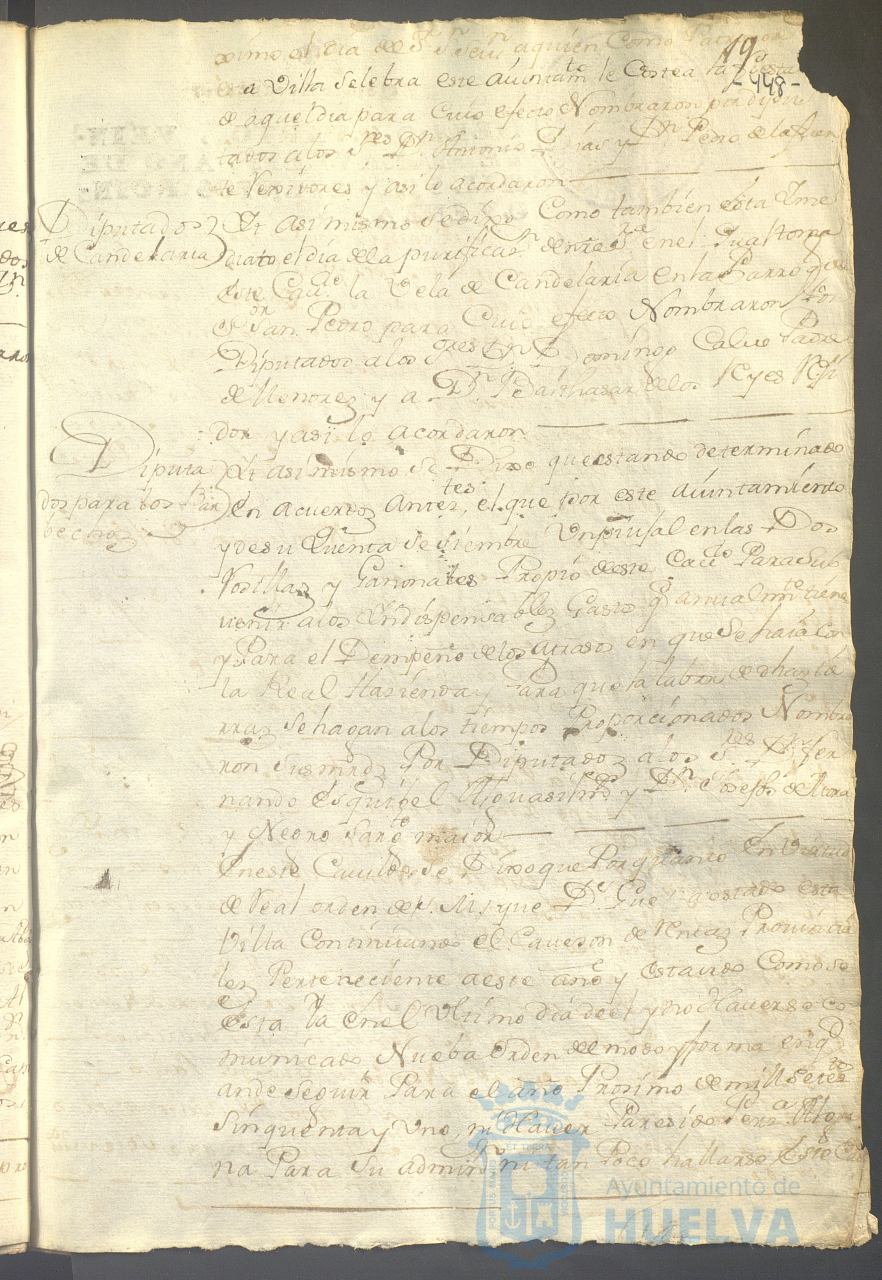 19
-448-
ximo el día de Sn Sevn aquien Como Patron
a Villa Selebra este Aiuntamto le Costea la fiesta
de aquel dia para Cuio efecto Nombraron por dipu
tados alos Sres Dn Antonio Dias y Dn Pedro de la fuen
te Rexidores y asi lo acordaron
Diputados
de Candelaria
Et asimismo se dixo Como tambien esta Ime
diato el dia dela purificasn de ntra Sra en el qual toma
este Cavdo la Vela de Candelaria en la Parroqa de
el Sor San Pedro para Cuio efecto Nombraron Por
Diputados alos Sres Dn Domingo Calvo Padre
de Menores y a Dn Balthasar delos Reyes Reji
dor y asi lo acordaron
Diputa
dos para los Bar
bechos
Et asimismo se Dixo que estando determinado
En acuerdos Antestes, el que por este Aiuntamiento
y de su Quenta se siembre Un piujal en las Dos
Rosillas y Garionales Propio de este Cavdo Para Sub
venir alos Yndispensables Gasto qe anualmte tiene
y Para el Dempeño de los Atrasos en que se haia Con
la Real Hasienda y Para que la labor de dhas tie
rras se hagan alos tiempos Proporcionados Nombra
ron sus mrds Por Diputados alos Sres Dn Fer
nando Esquibel Alguasil mr y Dn Joseph de Mora
y Negro Sarxto maior
En este Cavildo se Dixo que Por quanto En Virtud
de Real orden de S. M. que Ds Gue a estado esta
Villa Continuando el Caveson de Rentas Provincia
les Perteneciente a este año y estando Como se
Esta Ya En el Ultimo dia de el y no Haverse co
municado Nueba Orden del modo y forma en qe
ande seguir Para el año Proximo de mill setesto
Sinquenta y Uno, ni Haver Paresido Persa Algu
na Para Su adminn ni tan Poco hallarse Este Ca
Ayuntamiento de
HUELVA